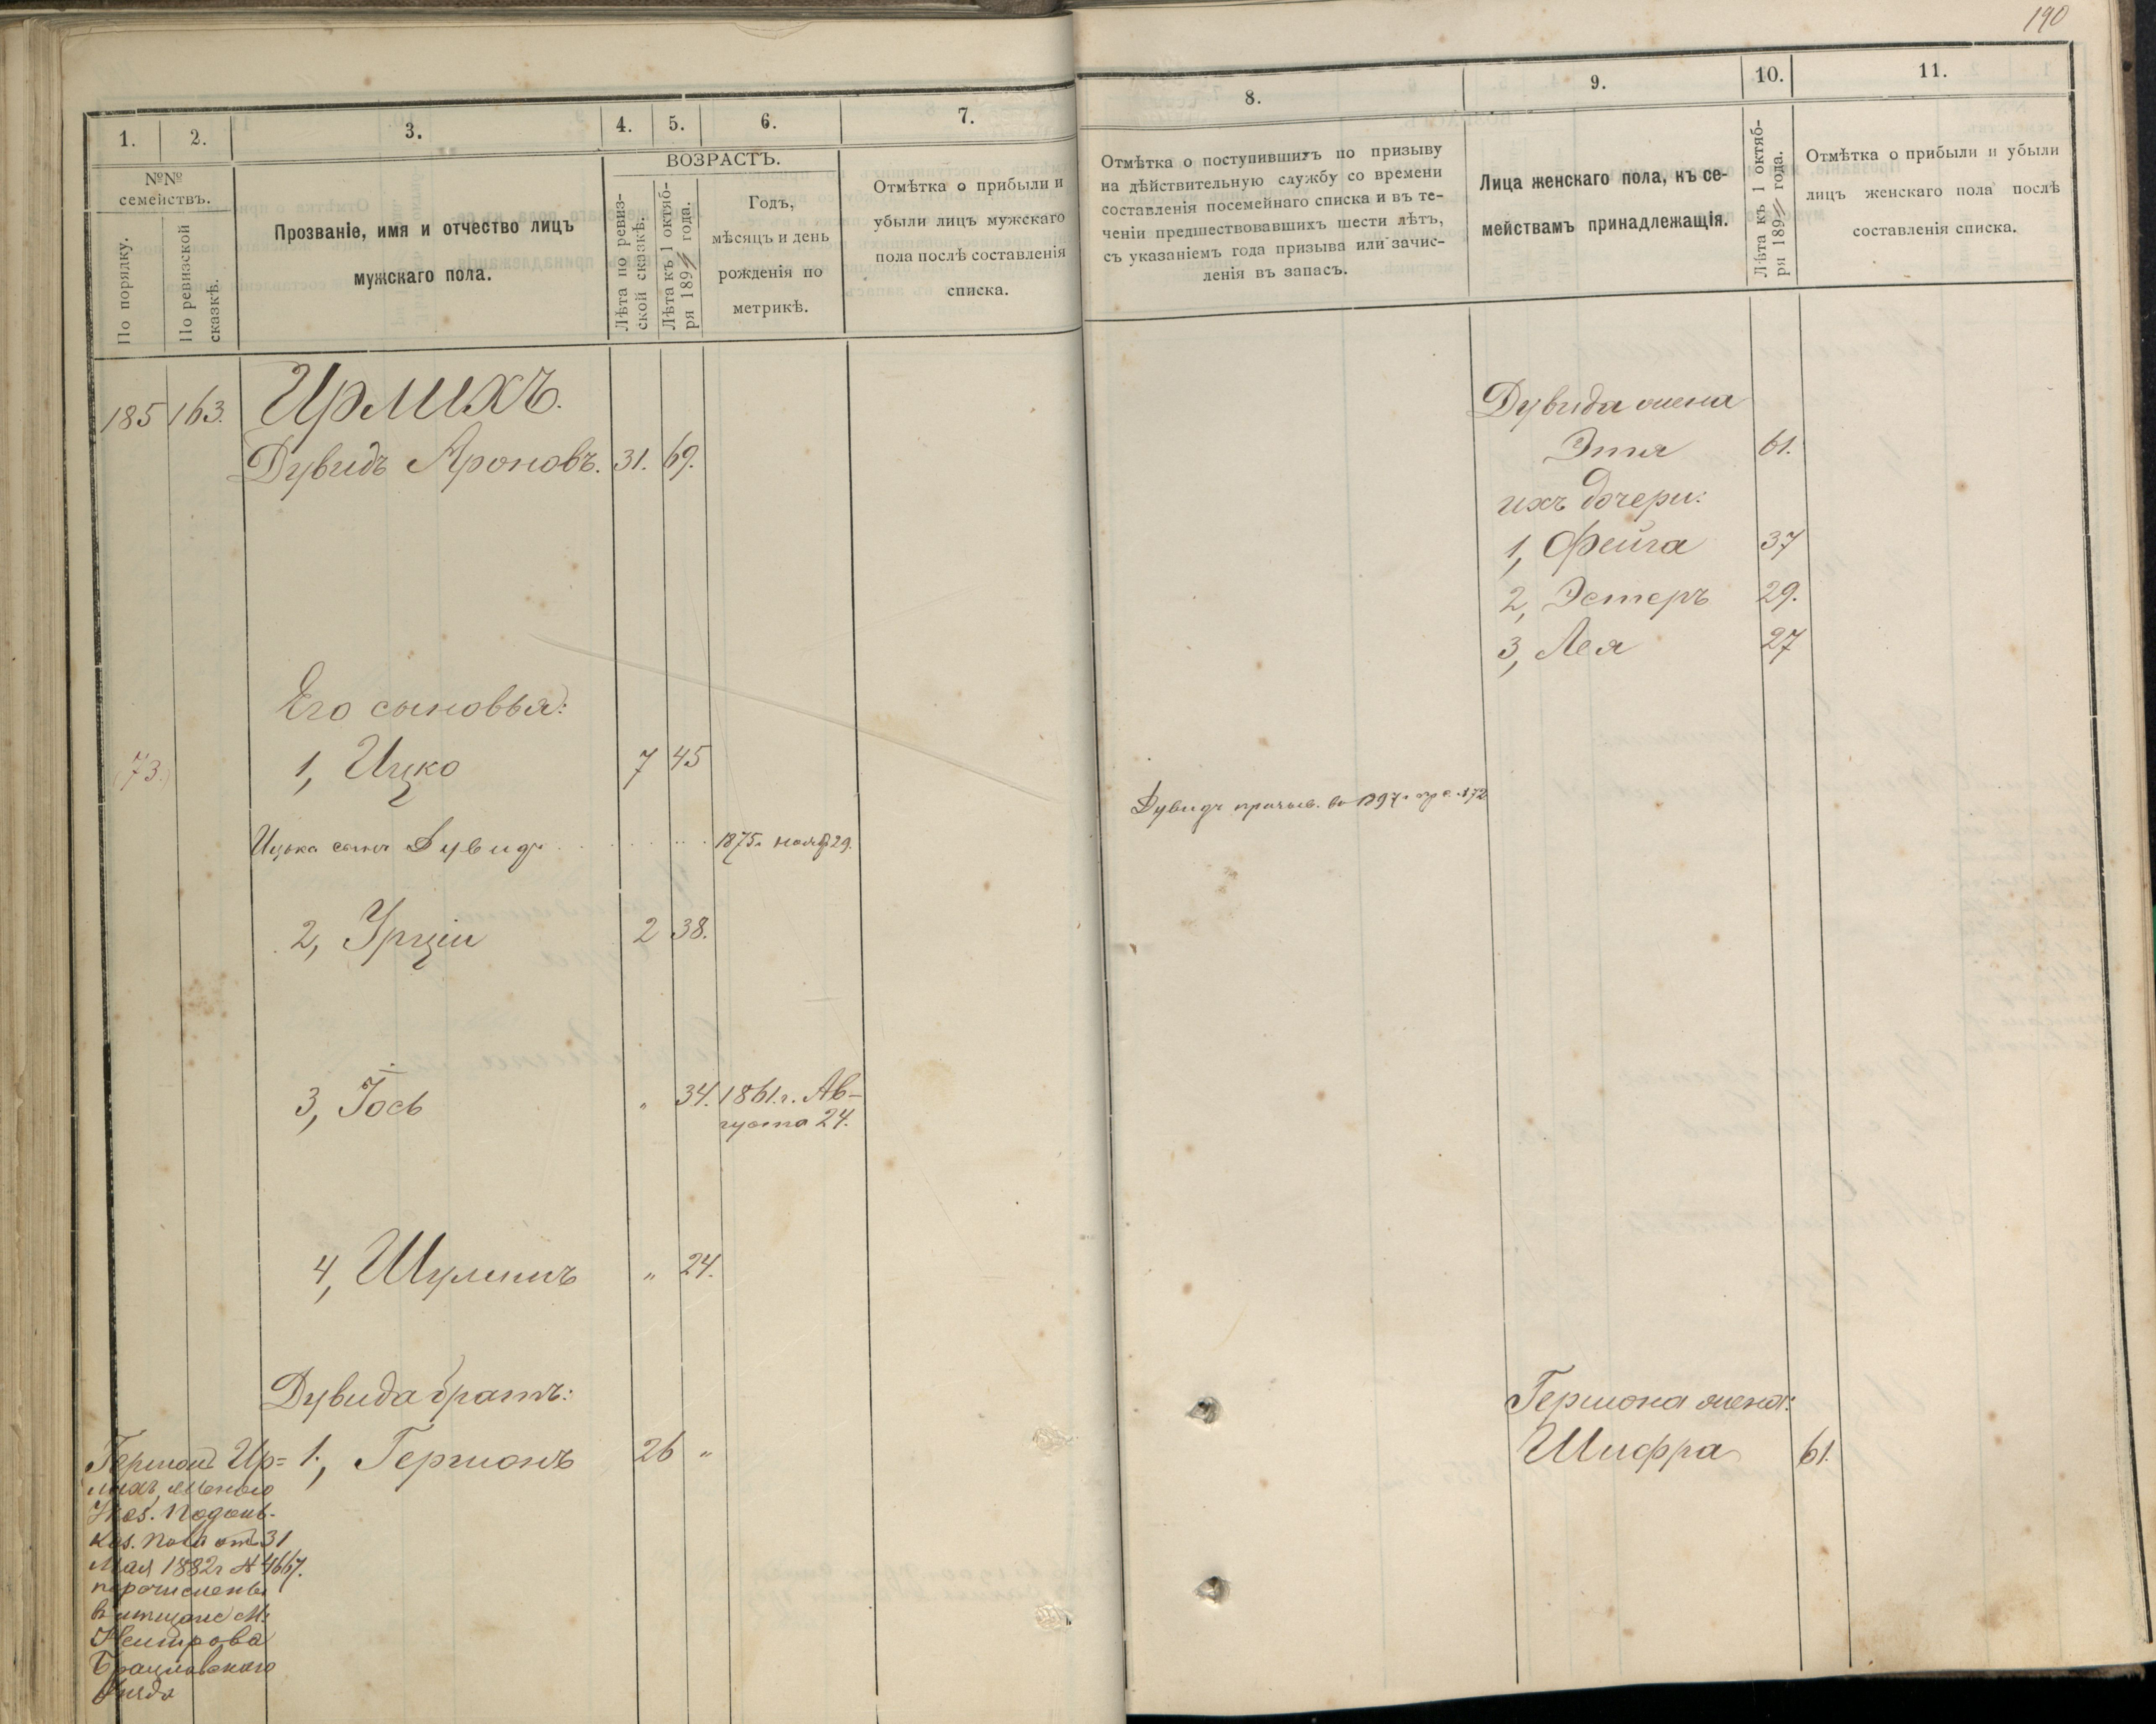 190
1.
2.
3.
4.
5.
6.
7.
№№ семействъ.
По порядку.
По ревизской сказкѣ.
Прозваніе, имя и отчество лицъ
мужскаго пола.
ВОЗРАСТЪ.
Лѣта по ревиз-
ской сказкѣ.
Лѣта къ 1 октяб-
ря 189 года.
Годъ,
мѣсяцъ и день
рожденія по
метрикѣ.
Отмѣтка о прибыли и
убыли лицъ мужскаго
пола послѣ составленія
списка.
185 163. Ирлихъ.
Дувидъ Ароновъ. 31. 69.
Его сыновья:
(73.) 1, Ицко 7 45
Ицька сынъ Дувидъ 1875 г. нояб 29.
2, Урцiи 2 38.
3, Іось " 34. 1861 г. Ав-
густа 24.
4, Шулимъ " 24.
Дувида братъ:
1., Гершонъ 26 "
Гершон Ир=
лихъ, женою
Указ. Подоль.
Каз. Пала от 31
Мая 1882 г № 4667.
перечисленъ
в мещане м.
Немирова
Брацлавскаго
Уезда
8.
9.
10.
11.
Отмѣтка о поступившихъ по призыву
на дѣйствительную службу со времени
составленія посемейнаго списка и въ те-
ченіи предшествовавшихъ шести лѣтъ,
съ указаніемъ года призыва или зачис-
ленія въ запасъ.
Лица женскаго пола, къ се-
мействамъ принадлежащія.
Лѣта къ 1 октяб-
ря 189 года.
Отмѣтка о прибыли и убыли
лицъ женскаго пола послѣ
составленія списка.
Дувида жена
Этя 61.
ихъ дочери:
1, Фейга 37
2, Эстеръ 29.
3, Лея 27
Дувидъ призыв. в 1897 г. 172
Гершона жена:
Шифра 61.